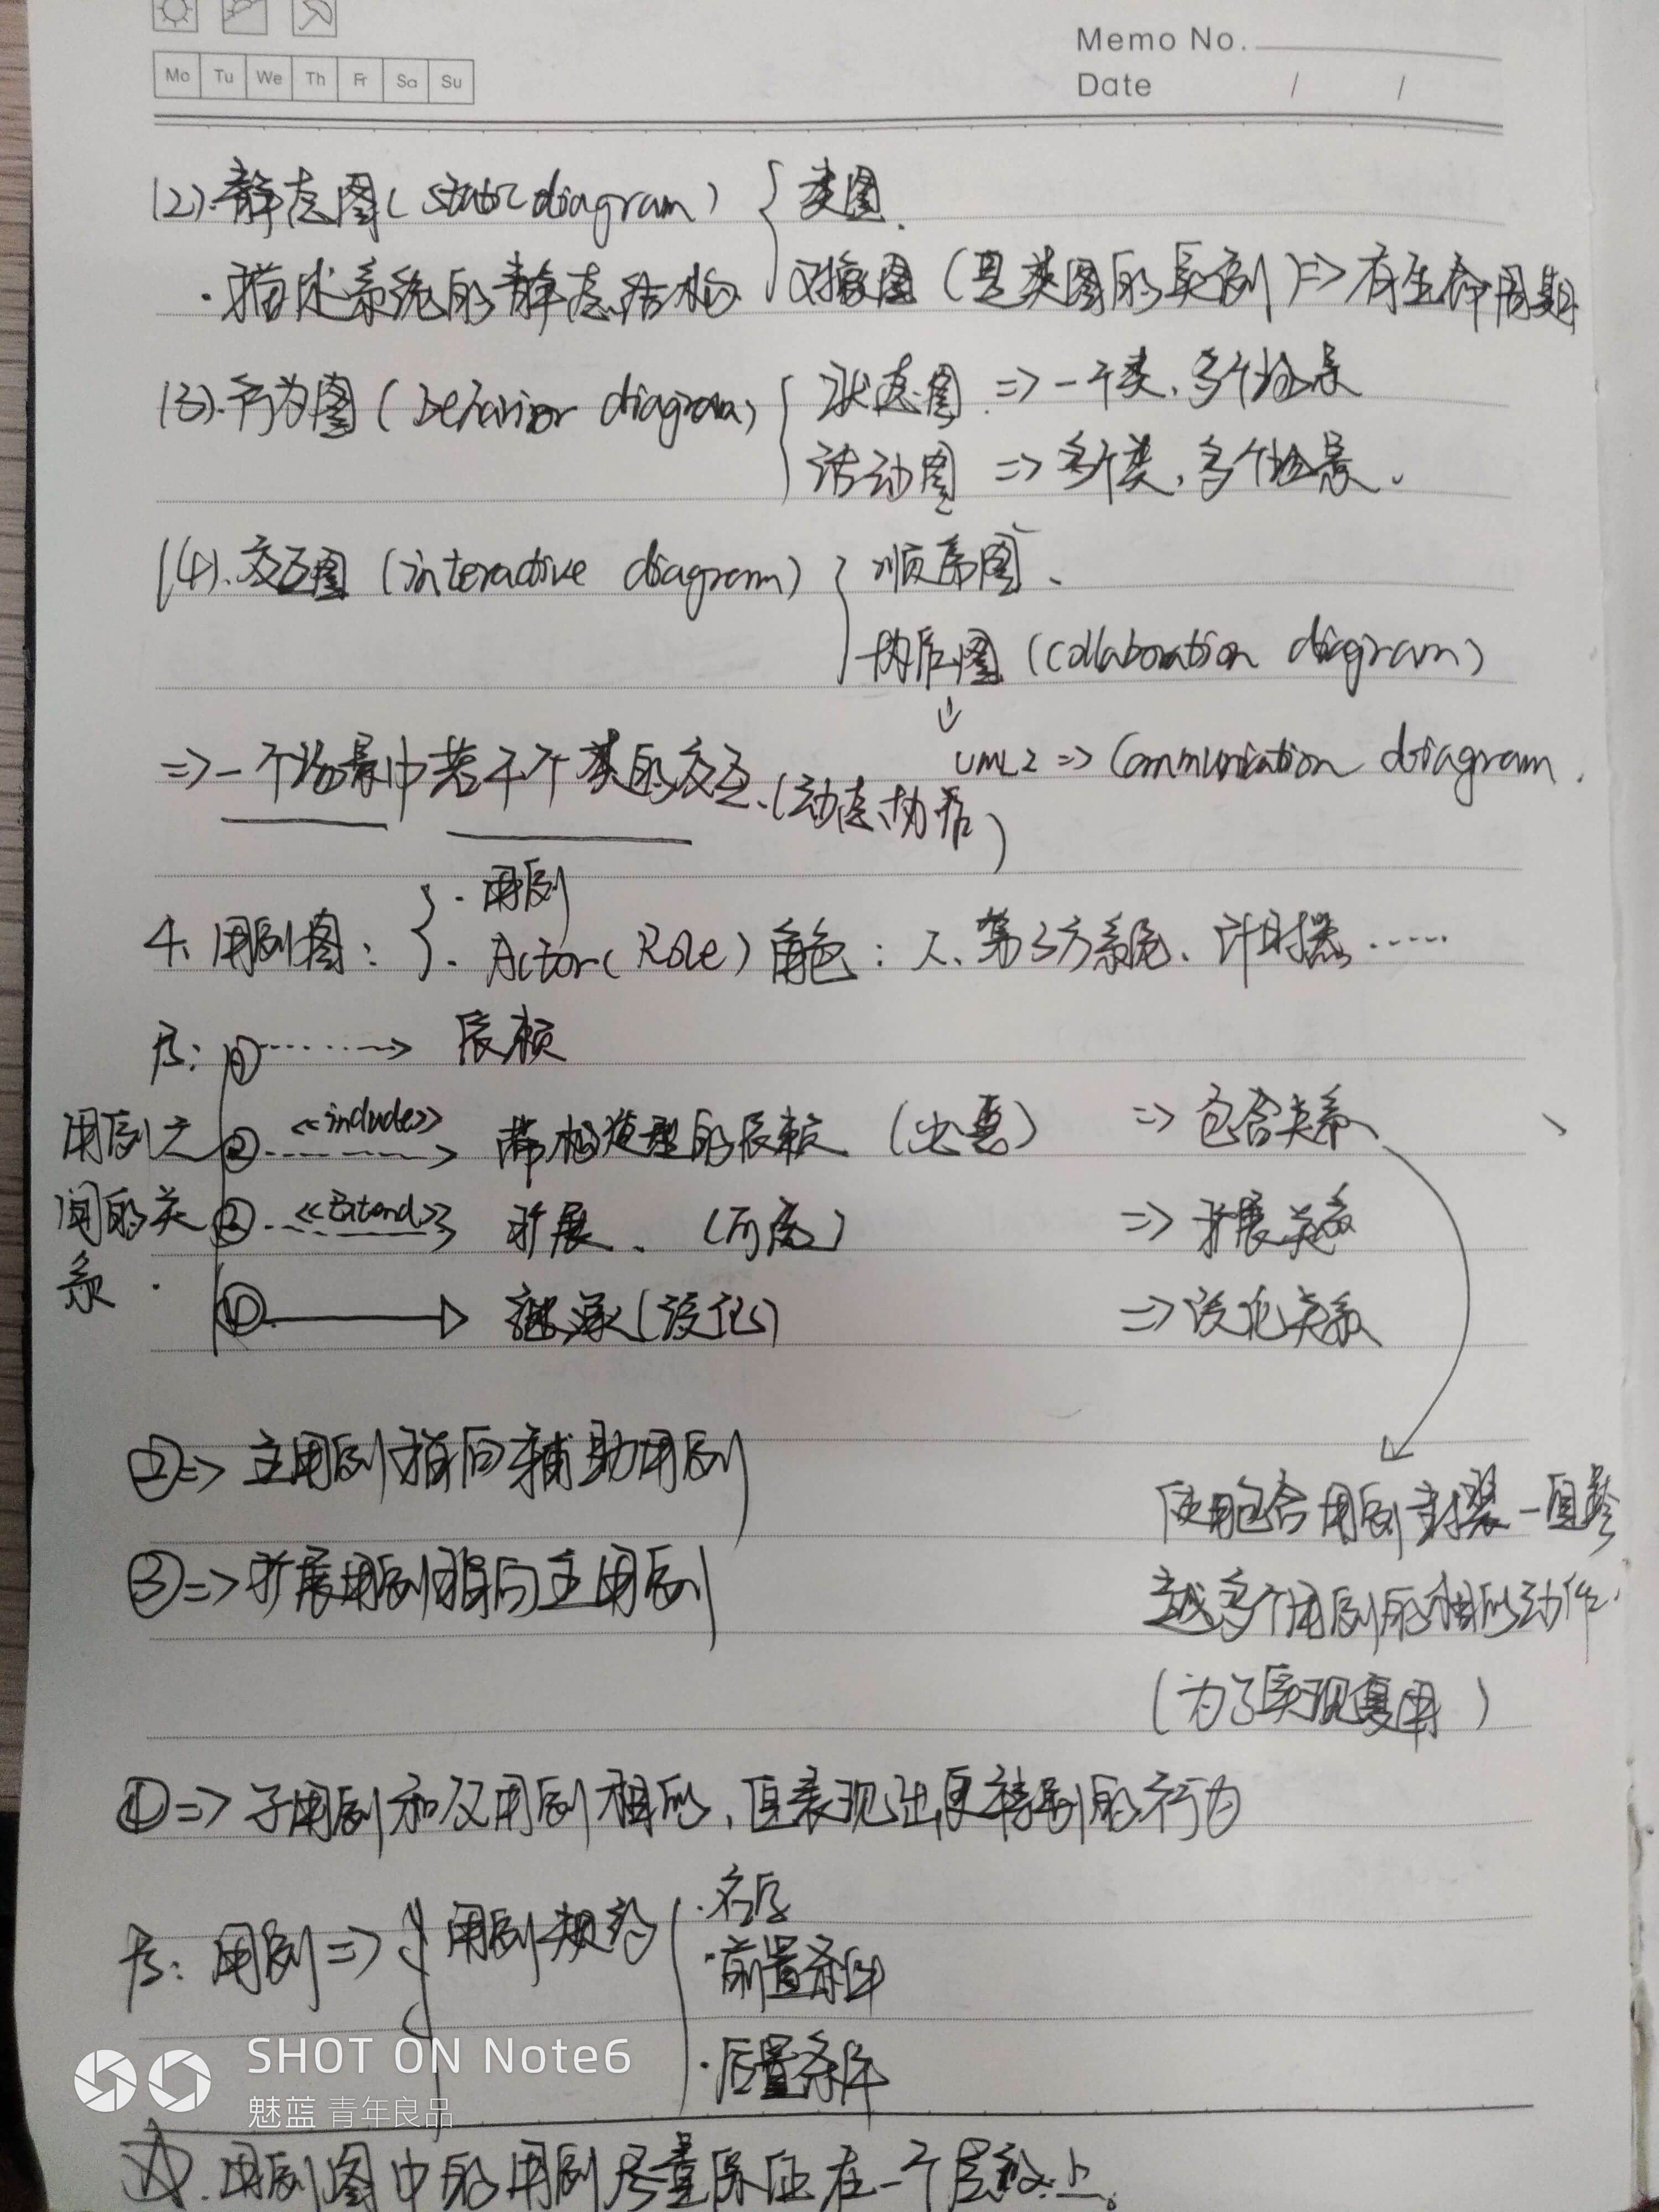 Memo No.
Mo Tu We Th Fr Sa Su
Date / /
(2).静态图(static diagram) { 类图.
·描述系统的静态结构 对象图(是类图的实例)=>有生命周期
(3).行为图(behavior diagram) { 状态图 => 一个类,多个场景
活动图 => 多个类,多个场景.
(4).交互图(interactive diagram) { 顺序图、
协作图(collaboration diagram)
UML2 => Communication diagram.
=>一个场景中若干个类的交互.(动态协作)
4.用例图: { ·用例
· Actor(Role)角色:人、第3方系统、计时器……
①┈┈> 依赖
用例之间的关系.
② <<include>> 带构造型的依赖 (必要) => 包含关系
③ <<Extend>> 扩展. (可选) => 扩展关系
④ 继承(泛化) => 泛化关系
②=> 主用例指向辅助用例
③=> 扩展用例指向主用例
使用包含用例封装一组跨
越多个用例的相似动作.
(为了实现复用)
④=> 子用例和父用例相似,但表现出更特别的行为
用例=> { 用例规约 { ·名字
·前置条件
·后置条件
SHOT ON Note6
魅蓝 青年良品
☆.用例图中的用例尽量保证在一个层级上。